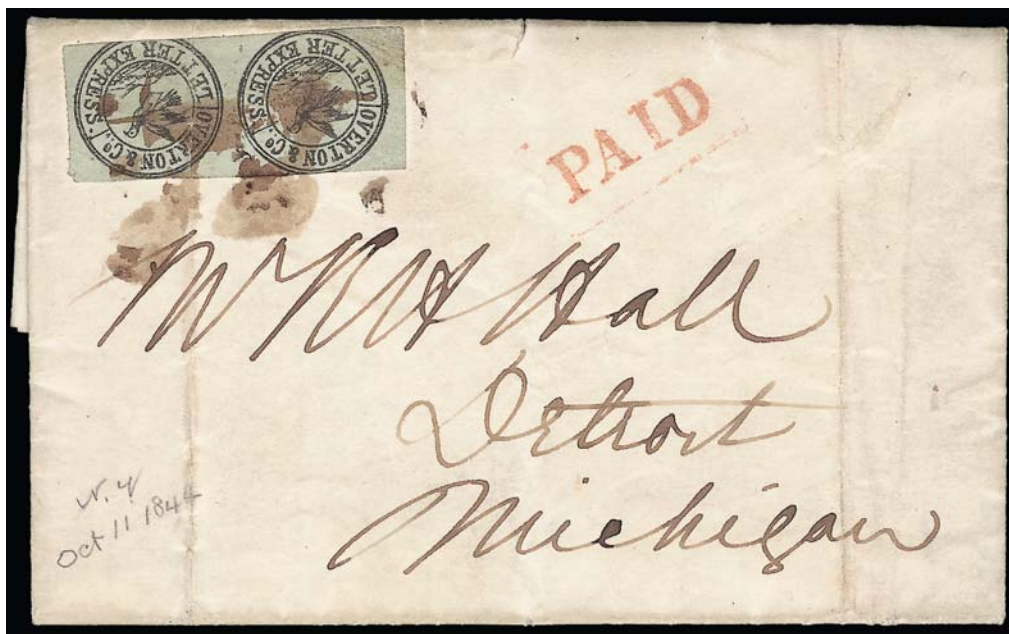 OVERTON & Co. LETTER EXPRESS.
OVERTON & Co. LETTER EXPRESS.
PAID
Mr R H Hall
Detroit
Michigan
N. Y
Oct 11 1844